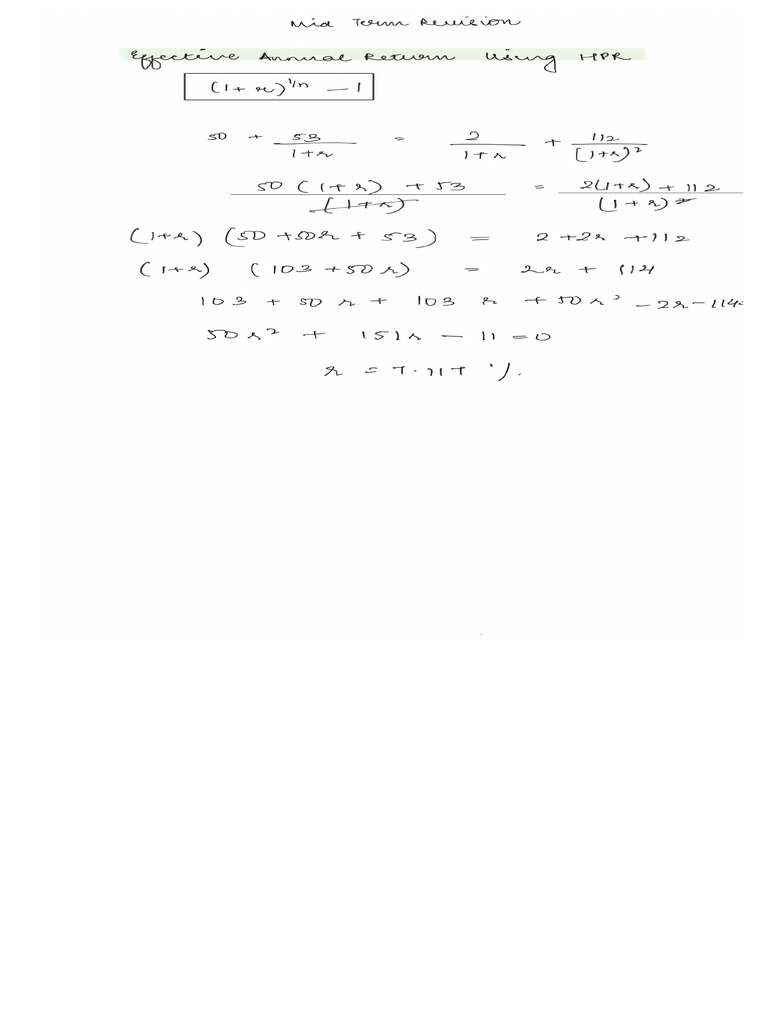 Mid Term Revision
Effective Annual Return Using HPR
(1+r)^1/n - 1
50 + 53/(1+r) = 2/(1+r) + 112/(1+r)^2
(50(1+r) + 53)/(1+r) = (2(1+r) + 112)/(1+r)^2
(1+r) (50+50r + 53) = 2+2r +112
(1+r) (103+50r) = 2r + 114
103 + 50r + 103r + 50r² - 2r - 114
50r² + 151r - 11 = 0
r = 7.117 %.